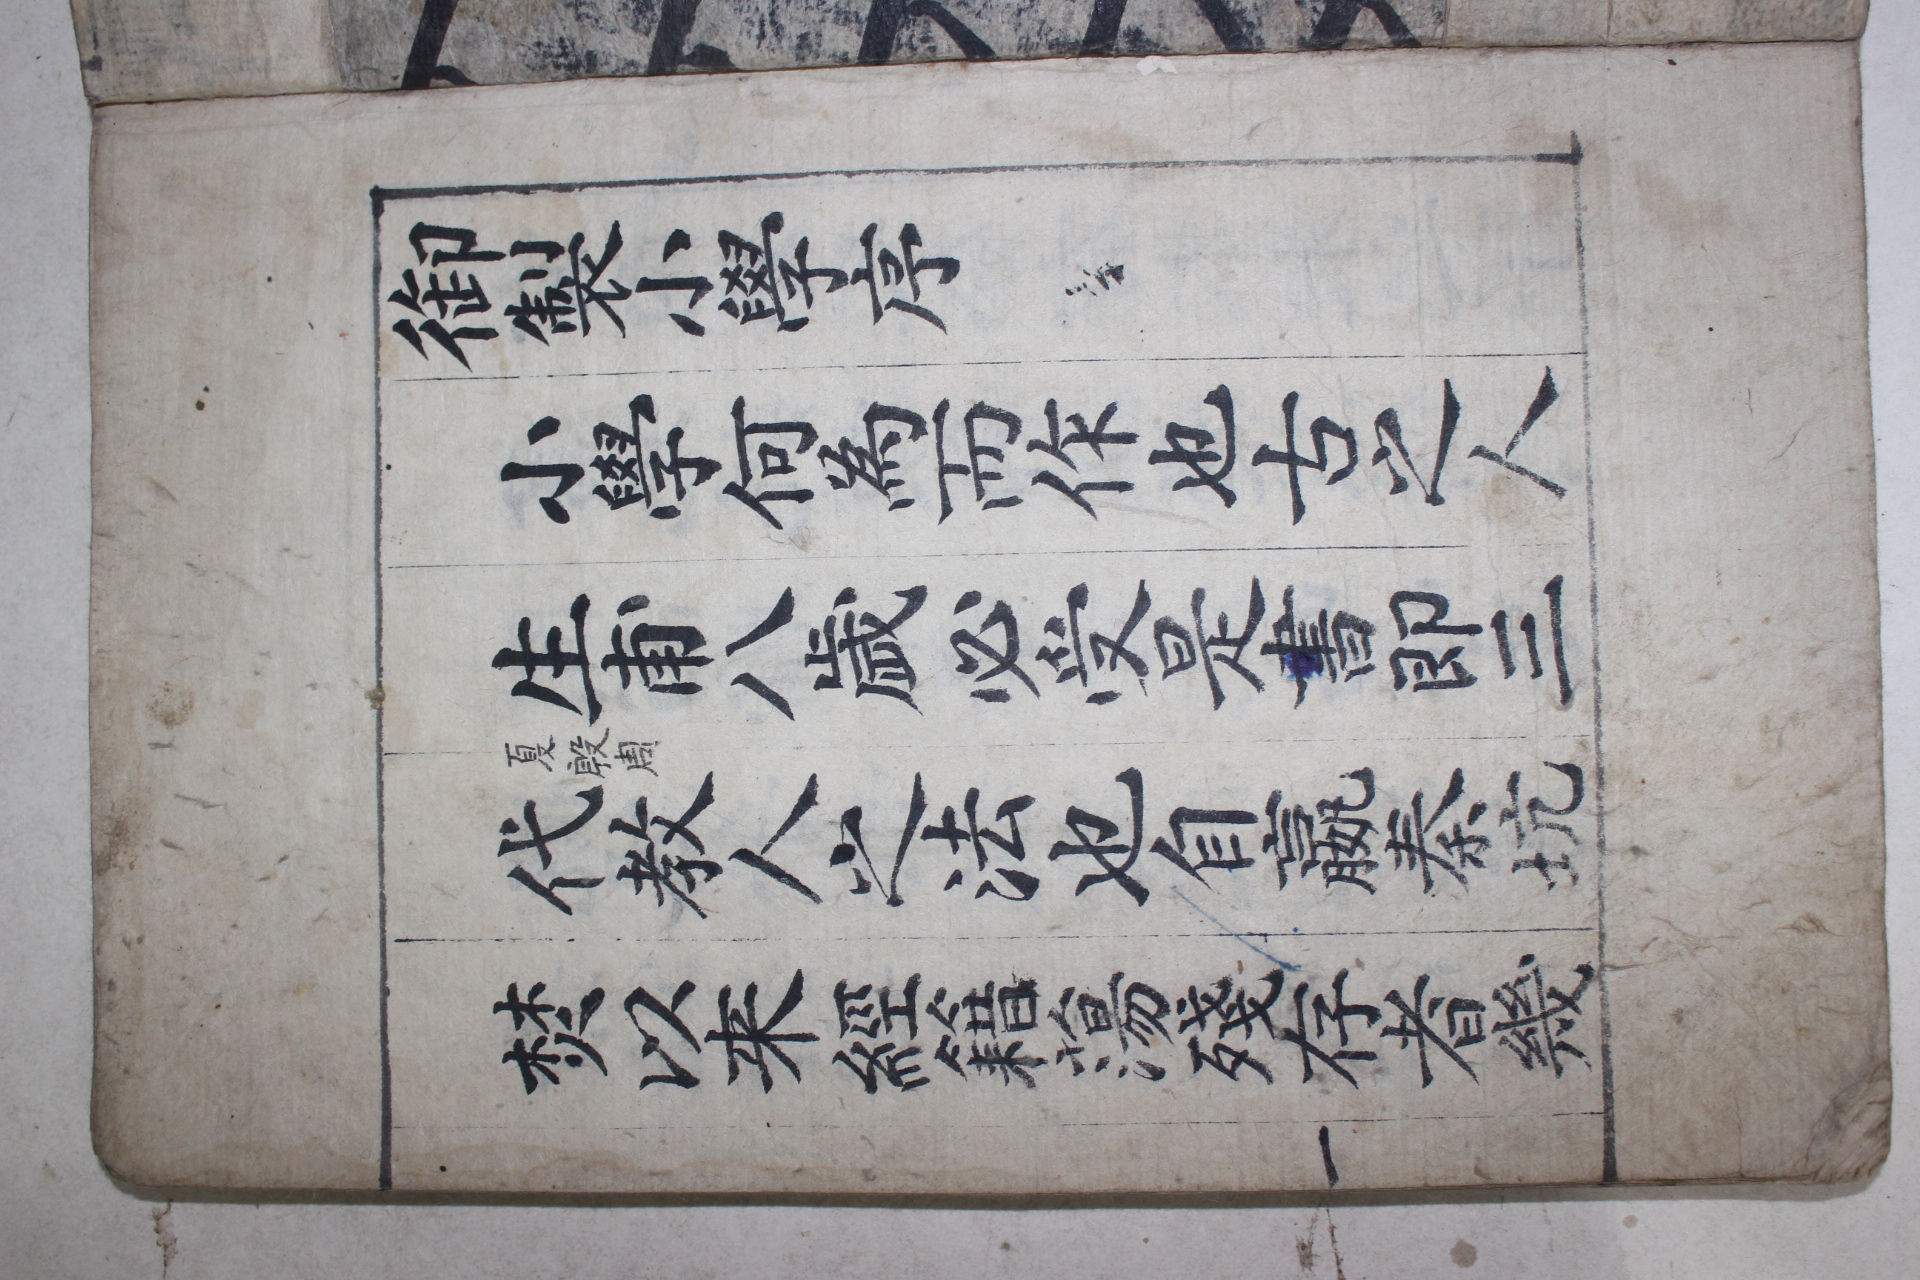 御製小學序
小學何爲而作也古之人
生甫八歲必受是書即三
夏殷周
代敎人之法也自嬴秦坑
焚以來經籍蕩殘存者幾
一